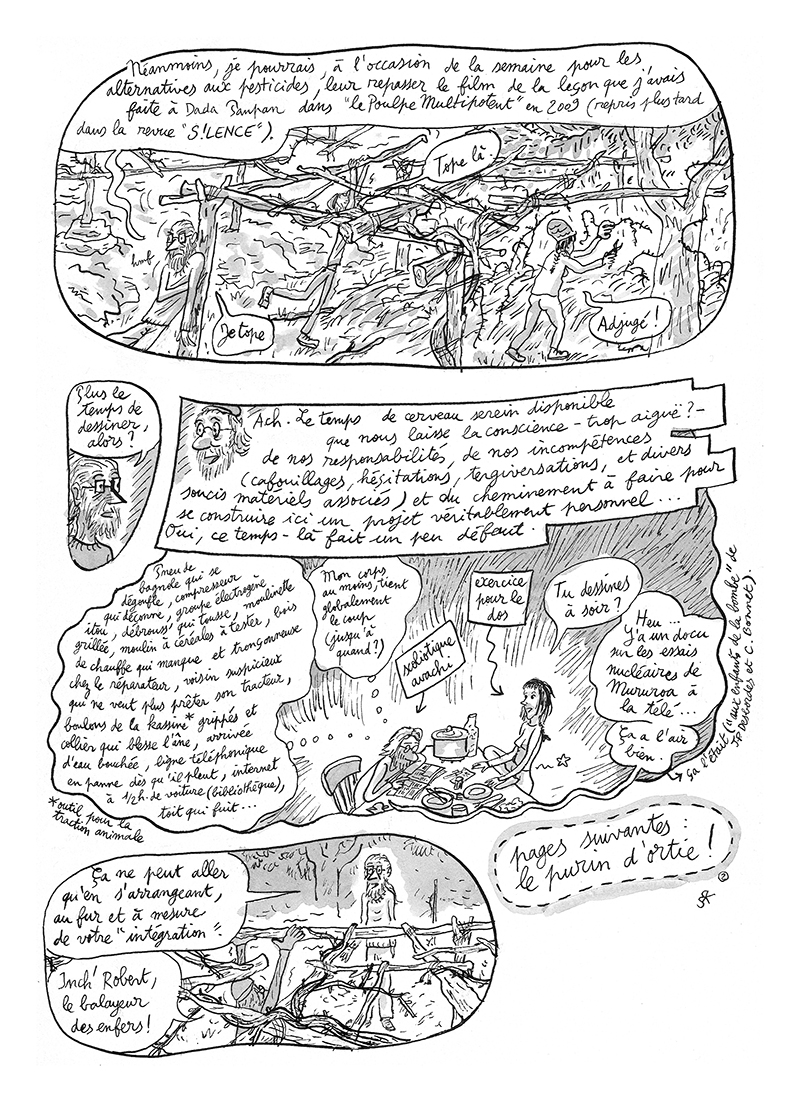 Néanmoins, je pourrais, à l'occasion de la semaine pour les
alternatives aux pesticides, leur repasser le film de la leçon que j'avais
faite à Dada Banpan dans "le Poulpe Multipotent" en 2009 (repris plus tard
dans la revue "S!LENCE").
Tope là
hmf
Je tope
Adjugé !
Plus le
temps de
dessiner,
alors ?
Ach. Le temps de cerveau serein disponible
que nous laisse la conscience - trop aiguë ? -
de nos responsabilités, de nos incompétences
(cafouillages, hésitations, tergiversations, et divers
soucis matériels associés) et du cheminement à faire pour
se construire ici un projet véritablement personnel ...
Oui, ce temps-là fait un peu défaut.
Pneu de
bagnole qui se
dégonfle, compresseur
qui déconne, groupe électrogène
itou, débrouss' qui tousse, moulinette
grillée, moulin à céréales à tester, bois
de chauffe qui manque et tronçonneuse
chez le réparateur, voisin suspicieux
qui ne veut plus prêter son tracteur,
boulons de la kassine* grippés et
collier qui blesse l'âne, arrivée
d'eau bouchée, ligne téléphonique
en panne dès qu'il pleut, internet
à 1/2h. de voiture (bibliothèque),
toit qui fuit ...
*outil pour la
traction animale
Mon corps,
au moins, tient
globalement
le coup
(jusqu'à
quand ?)
scoliotique
avachi
exercice
pour le
dos
Tu dessines
à soir ?
Heu ...
Y'a un docu
sur les essais
nucléaires de
Mururoa à
la télé ...
Ça a l'air
bien.
ça l'était ("aux enfants de la bombe" de
JP Desbordes et C. Bonnet).
pages suivantes :
le purin d'ortie !
2
Ça ne peut aller
qu'en s'arrangeant,
au fur et à mesure
de votre "intégration".
Inch' Robert,
le balayeur
des enfers !